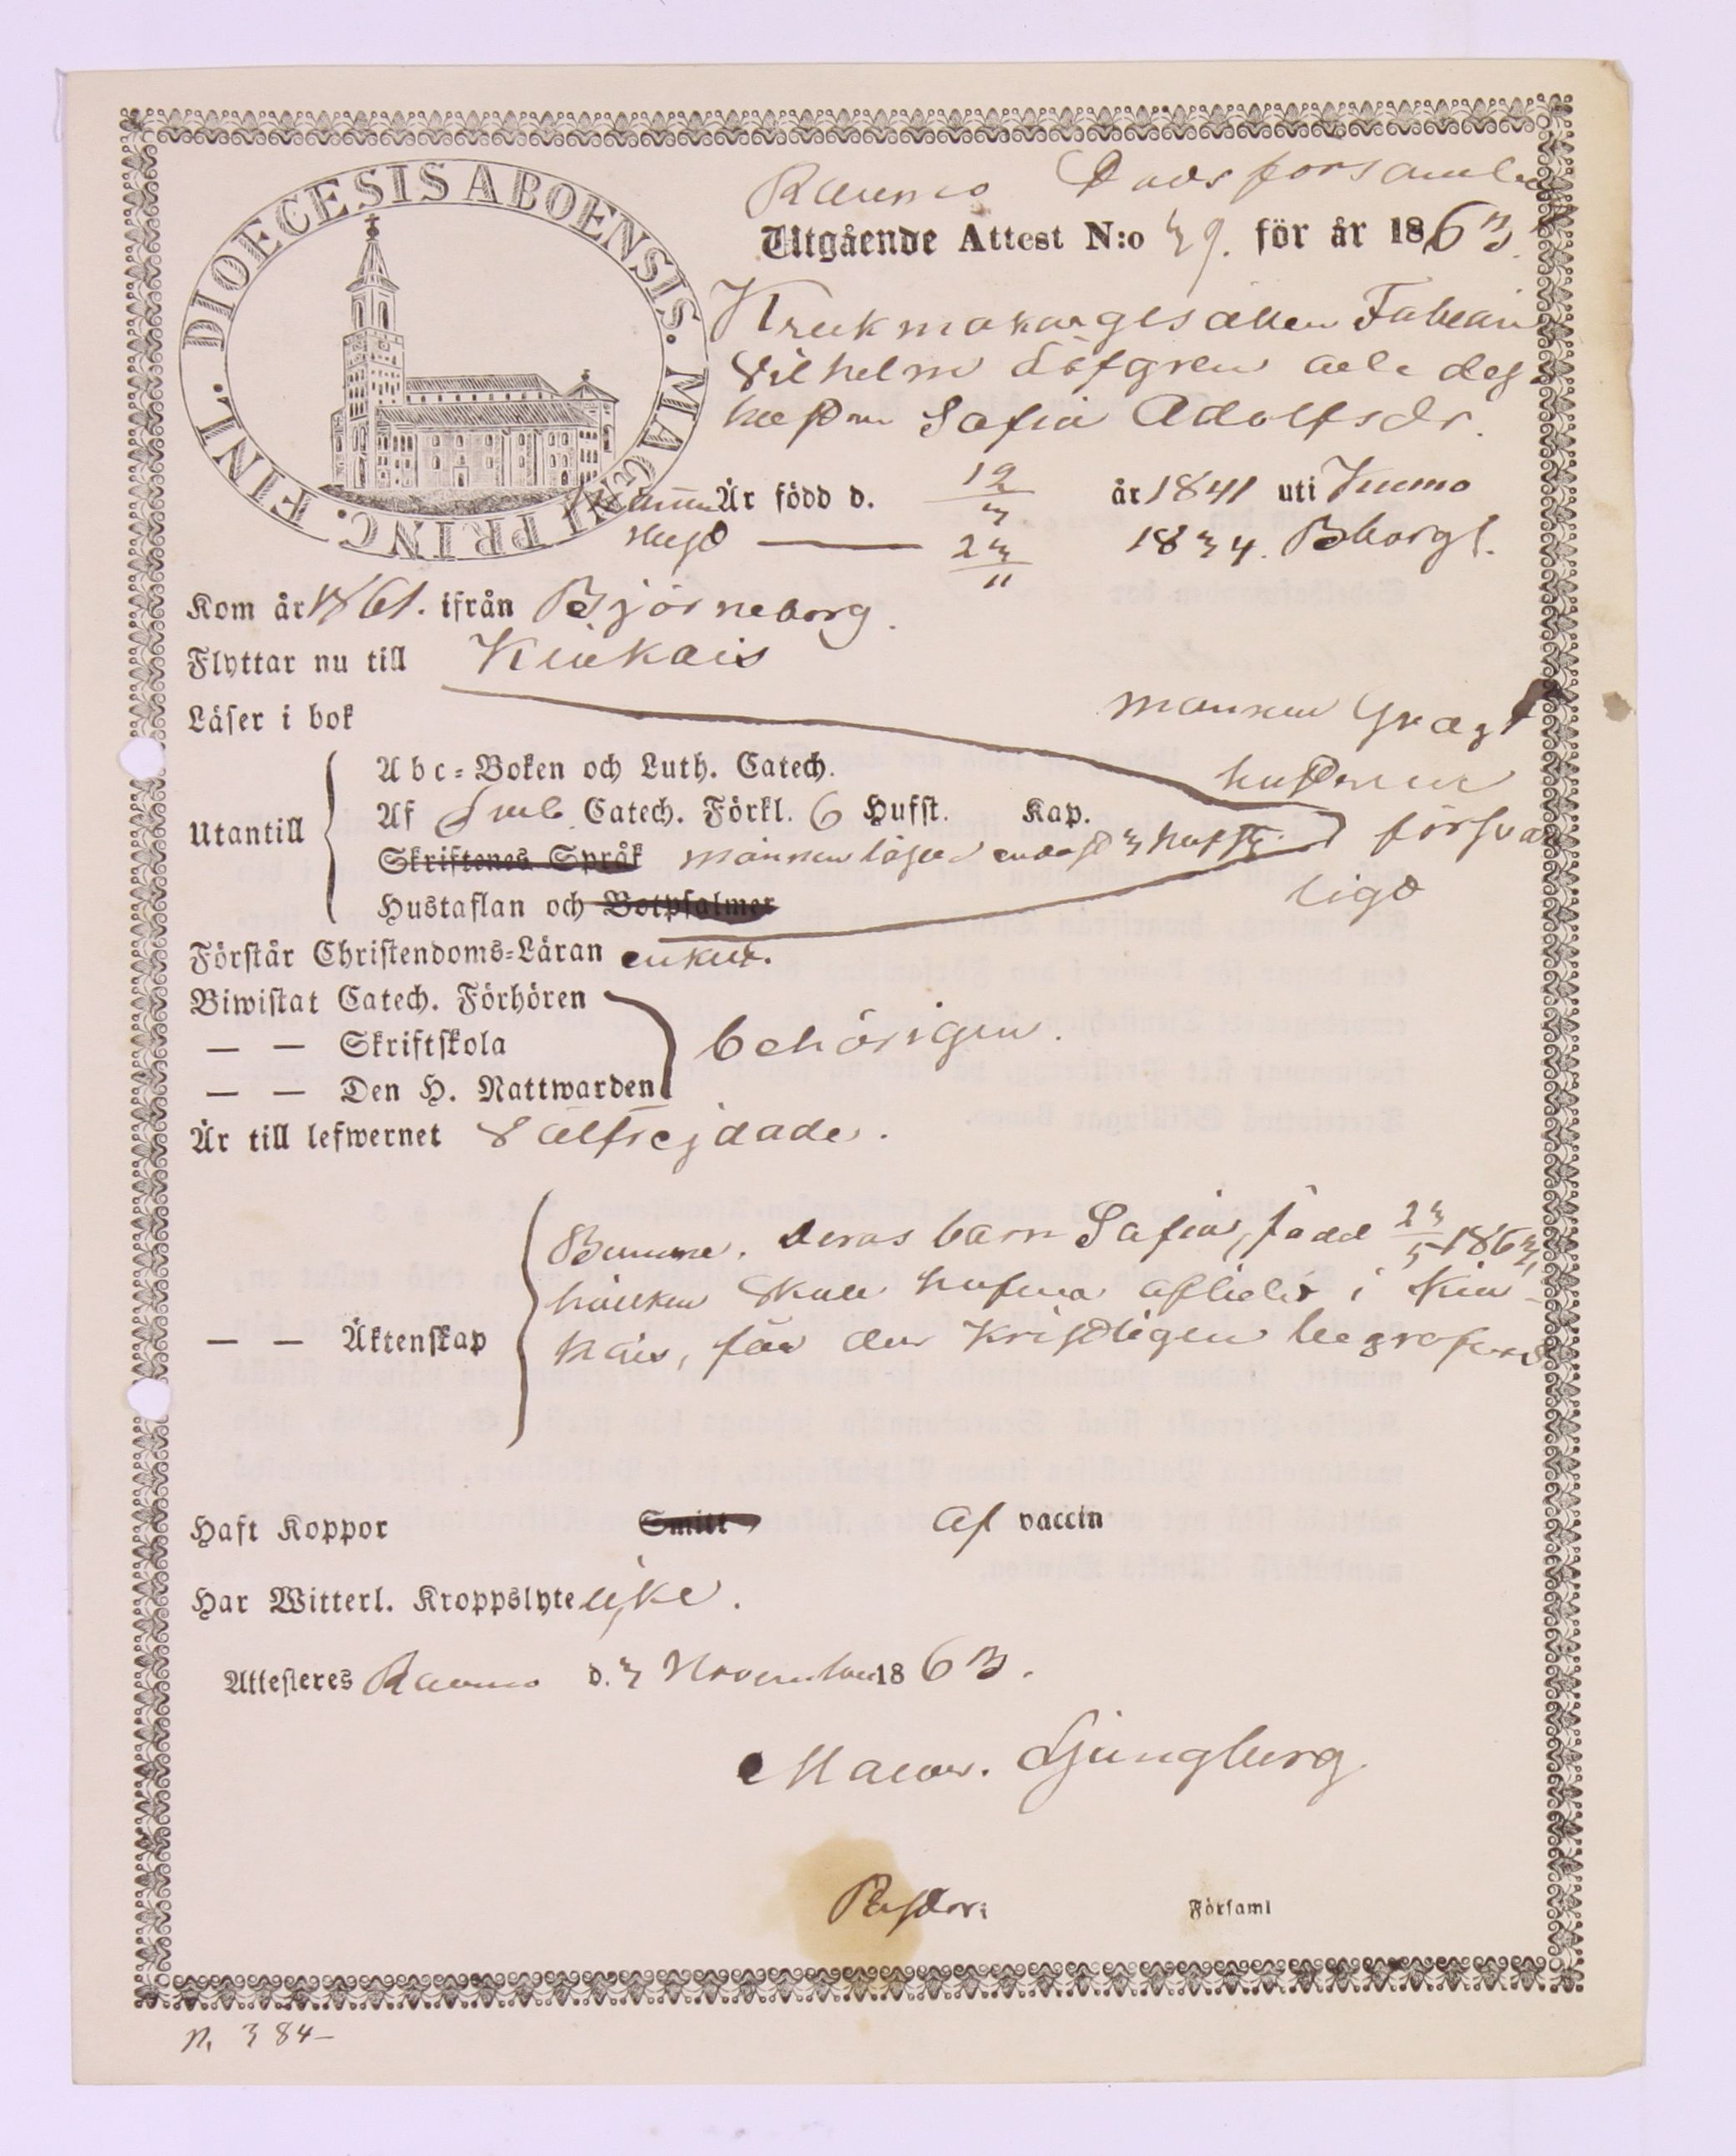 DIOECESIS ABOENSIS. MAGNI PRINC. FINL.
Raumo Stads församling
Utgående Attest N:o 39. för år 1863.
Krukmakaregesällen Fabian
Vilhelm Löfgren och dess
hustru Safia Adolfsdr.
Mannen Är född d. 12/3 år 1841 uti Kumo
Hust — 23/11 1834. Bborgs.
Kom år 1861. ifrån Björneborg.
Flyttar nu till Kiukais
Läser i bok mannen svagt
hustrun
försvar
ligt
Utantill
Abc-Boken och Luth. Catech.
Af Catech. Förkl. 6 Hufst. Kap.
Skriftenes Språk mannen läser endast 3 hufst.
Hustaflan och Botpsalmer
Förstår Christendoms-Läran enkelt.
Biwistat Catech. Förhören
— — Skriftskola behörigen.
— — Den H. Nattwarden
Är till lefwernet välfrejdade.
— — Äktenskap
Barn Safia, född 23/5 1863,
hvilken skall hafva aflidit i Kiu-
kais, får der kristligen begrafvas
Haft Koppor Smitt af vaccin
Har Witterl. Kroppslyte icke.
Attesteres Raumo d. 3 November 1863.
Ljungberg
Pastor i Församl
N. 384—